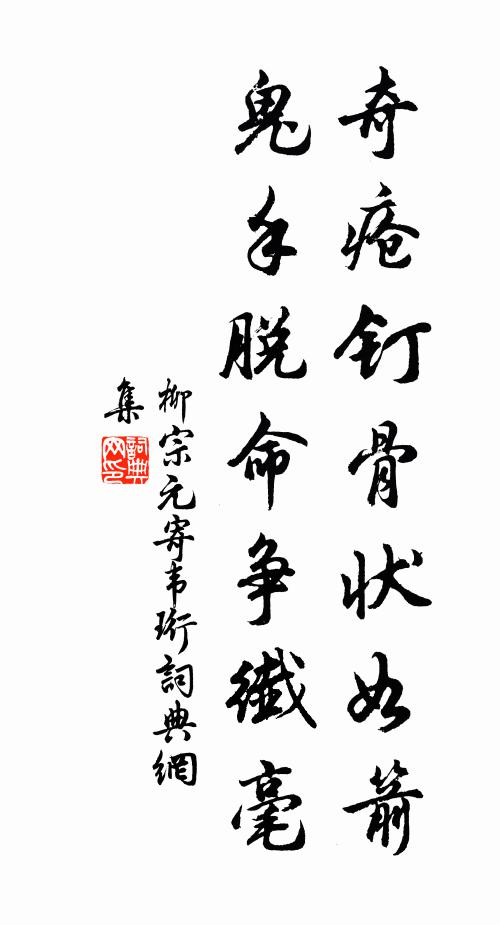 奇疮钉骨状如箭
鬼手脱命争纖毫
柳宗元寄韦珩詞典網
集
詞典网印